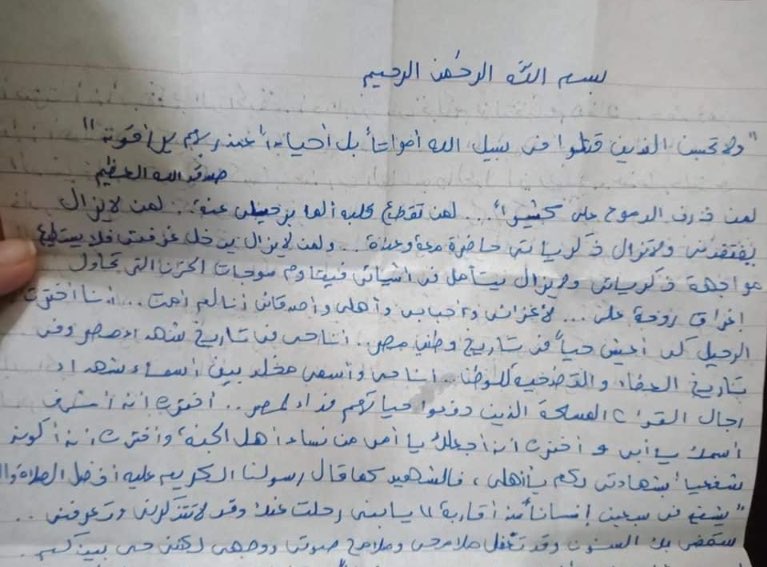 بسم الله الرحمن الرحيم
"ولا تحسبن الذين قتلوا فى سبيل الله أمواتاً بل أحياء عند ربهم يرزقون"
صدق الله العظيم
لمن ذرف الدموع على كثيراً... لمن تقطع قلبه ألما برحيلى عنه.. لمن لايزال
يفتقدنى ولاتزال ذكرياتى حاضرة معه وعنده... ولمن لايزال يدخل غرفتى فلا يستطيع
مواجهة ذكرياتى ولايزال يتأمل فى أشيائى فيقاوم موجات الحزن التى تحاول
اغراق روحه على... لأعزائى وأحبابى وأهلى وأصدقائى أنا لم أمت... أنا اخترت
الرحيل كى أعيش حياً فى تاريخ وطنى مصر.. أنا حى فى تاريخ شهداء مصر وفى
تاريخ العطاء والتضحيه للوطن.. أنا حى وأسمى مخلد بين أسماء شهداء
رجال القوات المسلحة الذين دفعوا حياتهم فداء لمصر.. أخترت أن أشرف
أسمك يا أبى و أخترت أن أجعلك يا أمى من نساء أهل الجنة وأخترت أن أكون
شفيعاً بشهادتى لكم يا أهلى، فالشهيد كما قال رسولنا الكريم عليه أفضل الصلاة وال
"يشفع فى سبعين إنساناً من أقاربة" يا بنى رحلت عنك وقد لا تتذكرنى وتعرفنى..
ستمضى بك السنون وقد تغفل ملامحى وملامح صوتى ووجهى لكنى حى بينكم..